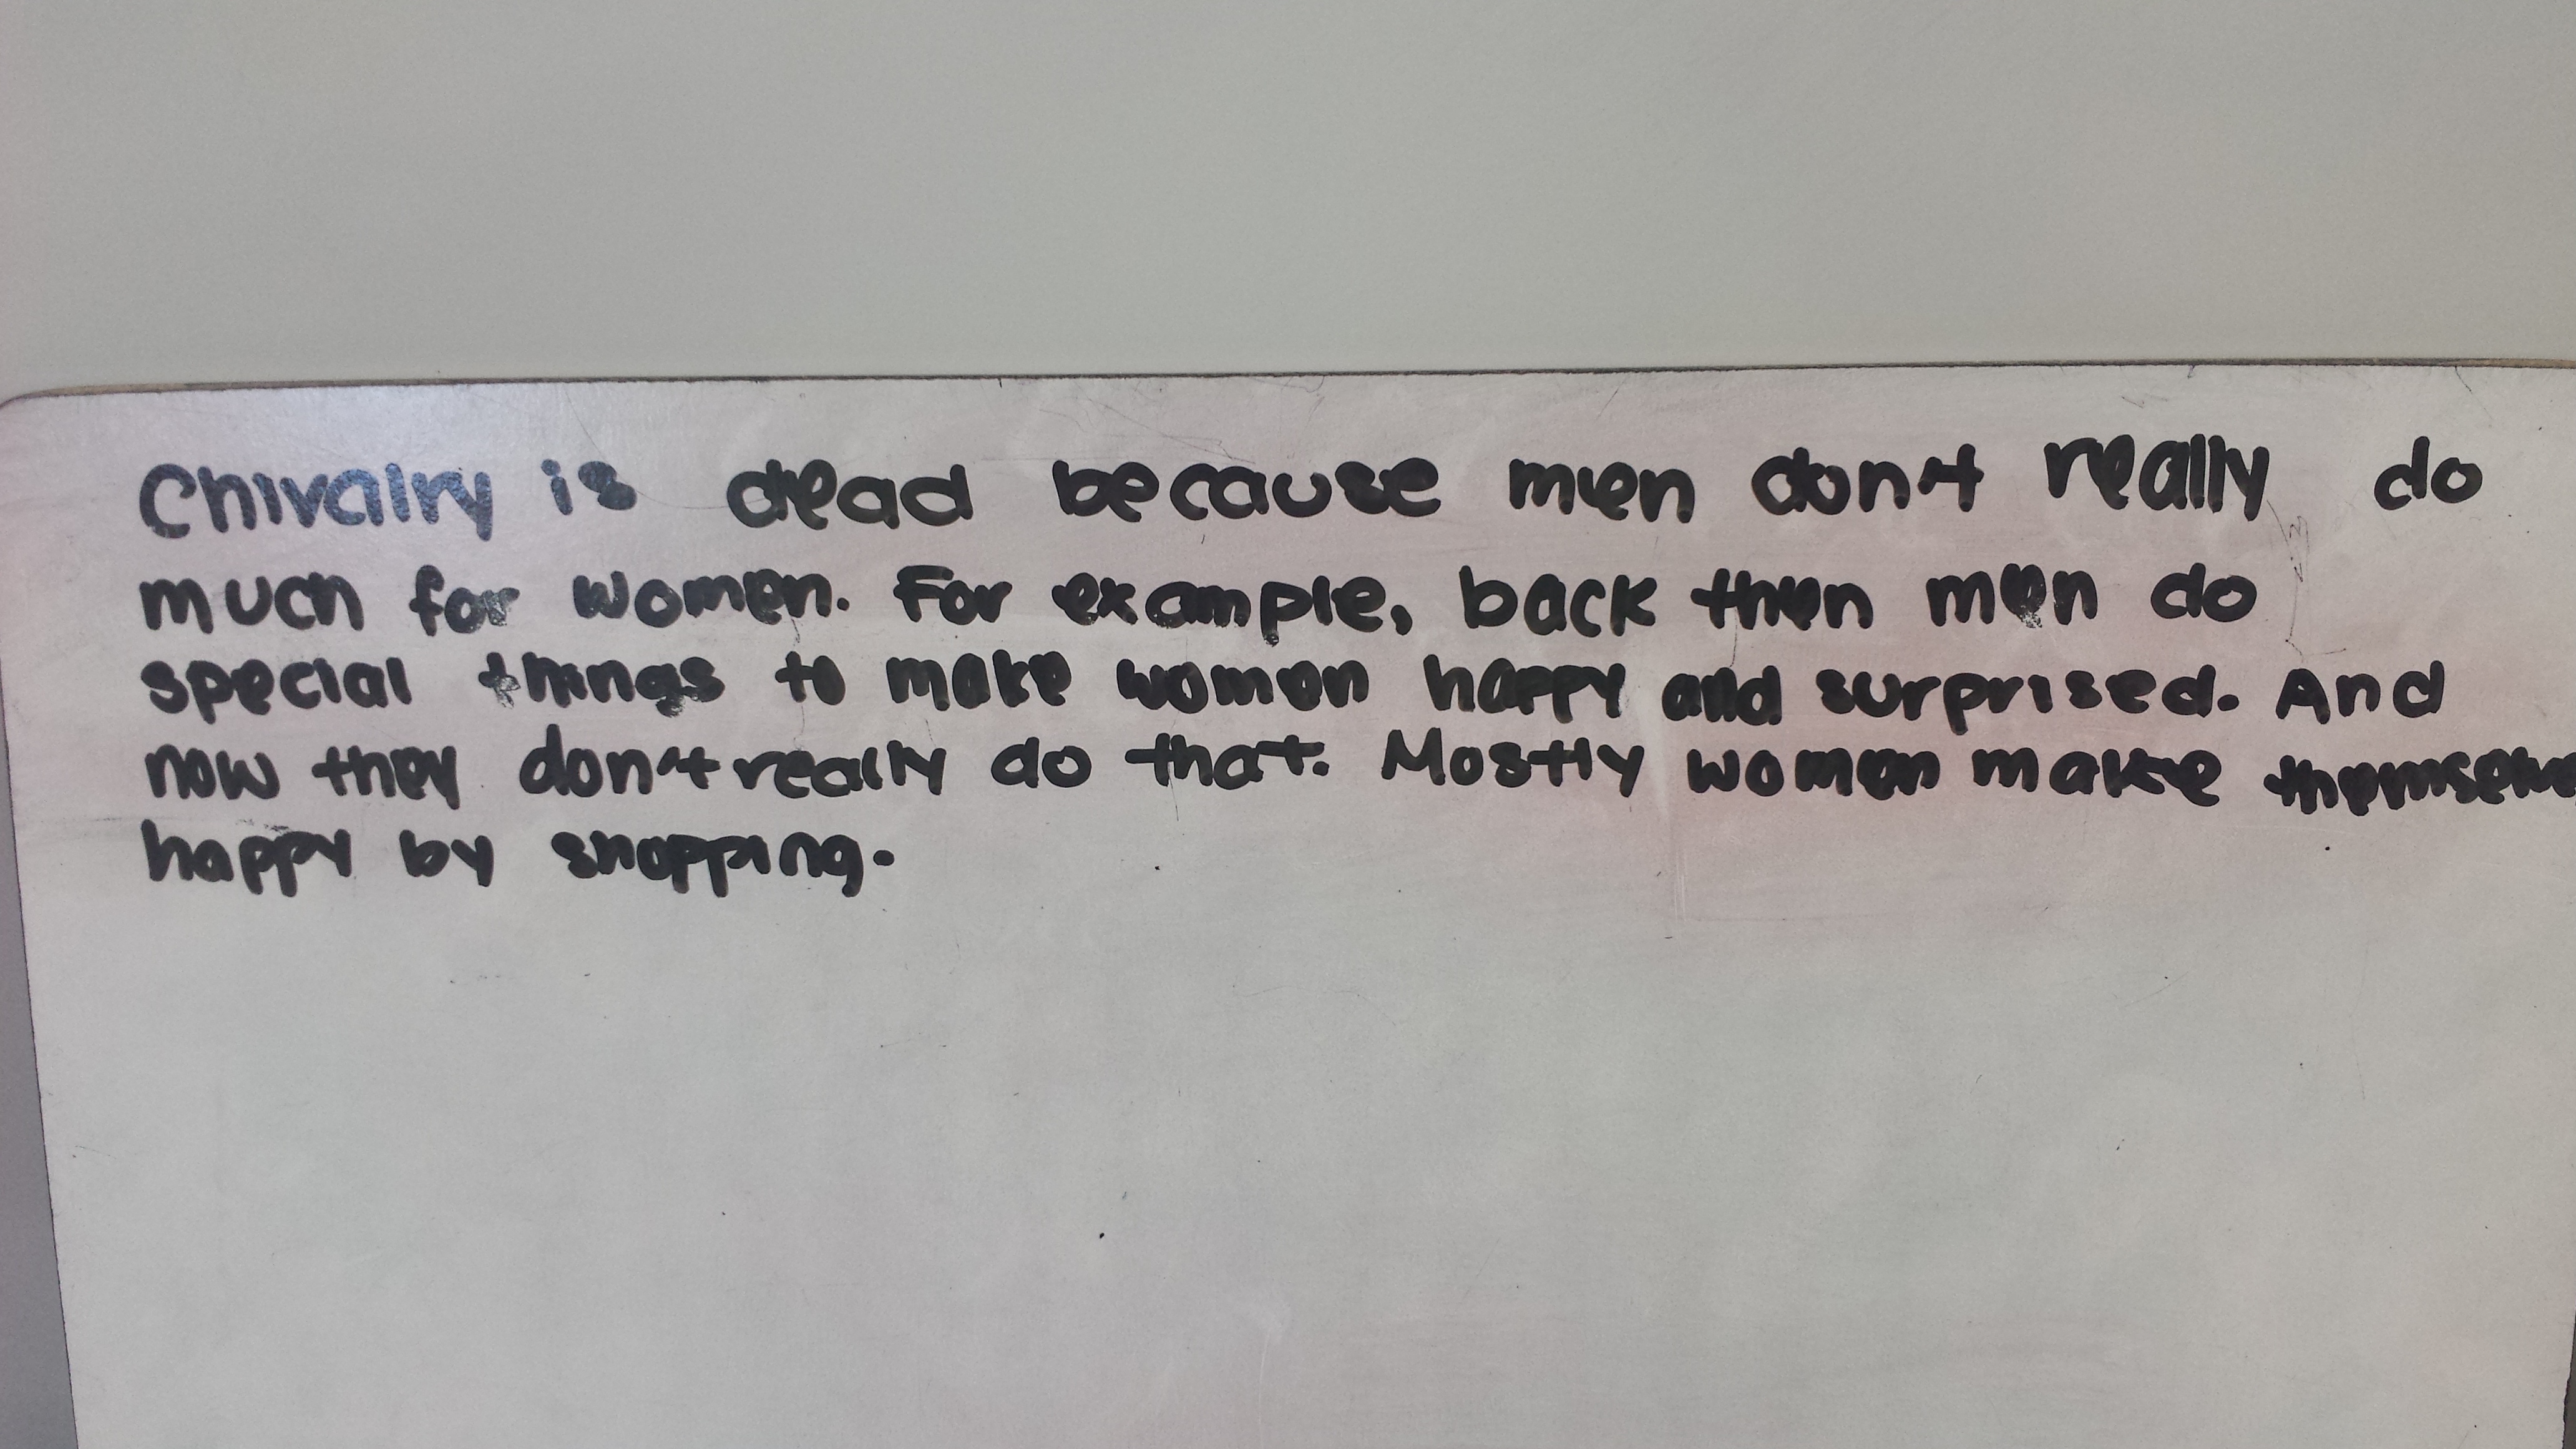 Chivalry is dead because men don't really do
much for women. For example, back then men do
special things to make women happy and surprised. And
now they don't really do that. Mostly women make themselve
happy by shopping.